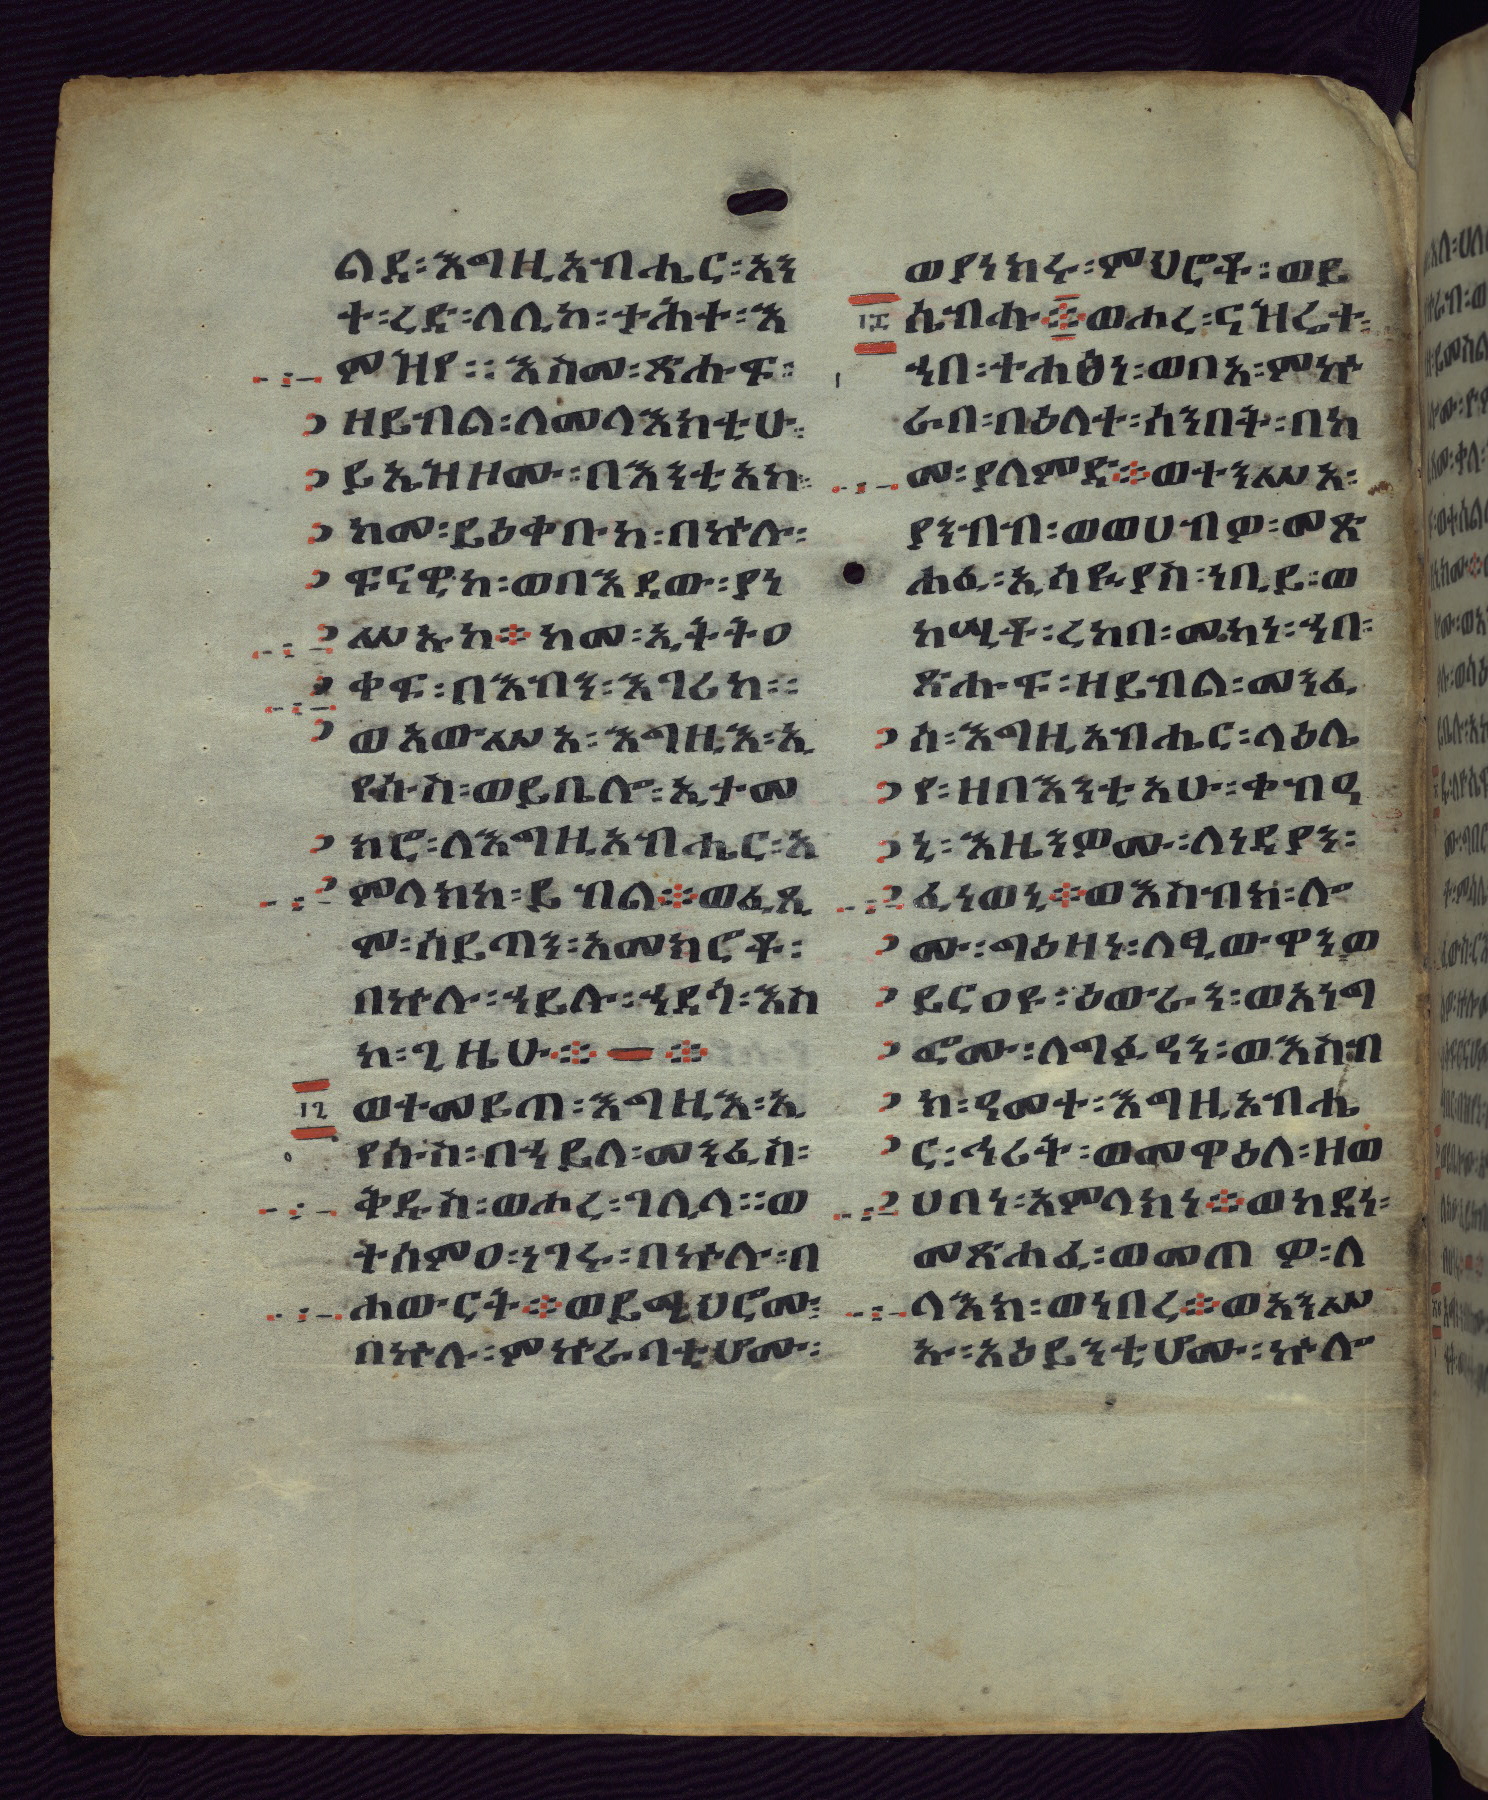 ልደ፡እግዚአብሔር፡አን
ተ፡ረድ፡ለሊከ፡ታሕተ፡እ
ምዝየ፡፡እስመ፡ጽሑፍ፡
ዘይብል፡ለመላእክቲሁ፡
ይኤዝዞሙ፡በእንቲአከ፡
ከመ፡ይዕቀቡከ፡በኵሉ፡
ፍናዊከ፡ወበእደው፡ያነ
ሥኡከ፨ከመ፡ኢትትዐ
ቀፍ፡በእብን፡እገሪከ፡፡
ወአውሥአ፡እግዚእ፡ኢ
የሱስ፡ወይቤሎ፡ኢታመ
ክሮ፡ለእግዚአብሔር፡አ
ምላክከ፡ይብል፨ወፈጺ
ሞ፡ሰይጣን፡አመክሮቶ፡
በኵሉ፡ኀይሉ፡ኀደጎ፡እስ
ከ፡ጊዜሁ፨ ፨
፲፪
ወተመይጠ፡እግዚእ፡ኢ
የሱስ፡በኀይለ፡መንፈስ፡
ቅዱስ፡ወሖረ፡ገሊላ፡፡ወ
ተሰምዐ፡ነገሩ፡በኵሉ፡በ
ሐውርት፨ወይሜህሮሙ፡
በኵሉ፡ምኵራባቲሆሙ፡
ወያነክሩ፡ምህሮቶ፡ወይ
ሴብሑ፨ወሖረ፡ናዝሬተ፡
ኀበ፡ተሐፅነ፡ወቦአ፡ምኵ
ራበ፡በዕለተ፡ሰንበት፡በከ
መ፡ያለምድ፨ወተንሥአ፡
ያንብብ፡ወወሀብዎ፡መጽ
ሐፈ፡ኢሳይያስ፡ነቢይ፡ወ
ከሢቶ፡ረከበ፡መካነ፡ኀበ፡
ጽሑፍ፡ዘይብል፡መንፈ
ሰ፡እግዚአብሔር፡ላዕሌ
የ፡ዘበእንቲአሁ፡ቀብዓ
ኒ፡እዜንዎሙ፡ለነዳያን፡
ፈነወኒ፨ወእስብክ፡ሎ
ሙ፡ግዕዘነ፡ለፂውዋንወ
ይርዐዩ፡ዕውራን፡ወአነግ
ፎሙ፡ለግፉዓን፡ወእስብ
ክ፡ዓመተ፡እግዚአብሔ
ር፡ኅሪት፡ወመዋዕለ፡ዘወ
ሀበነ፡አምላክነ፨ወከደነ፡
መጽሐፈ፡ወመጠዎ፡ለ
ላእክ፡ወነበረ፨ወአንሥ
ኡ፡አዕይንቲሆሙ፡ኵሎ